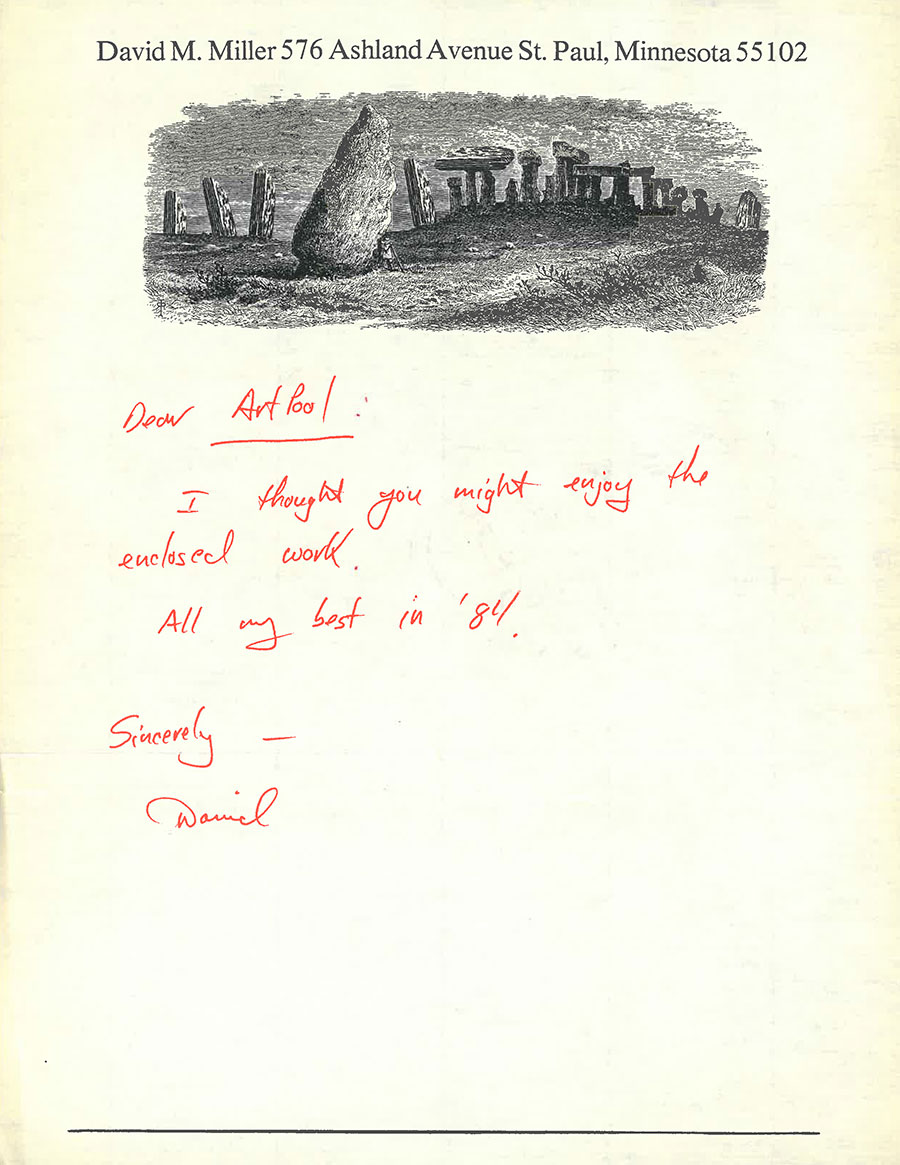 David M. Miller 576 Ashland Avenue St. Paul, Minnesota 55102
Dear ArtPool :
I thought you might enjoy the
enclosed work.
All my best in '84.
Sincerely —
Daniel